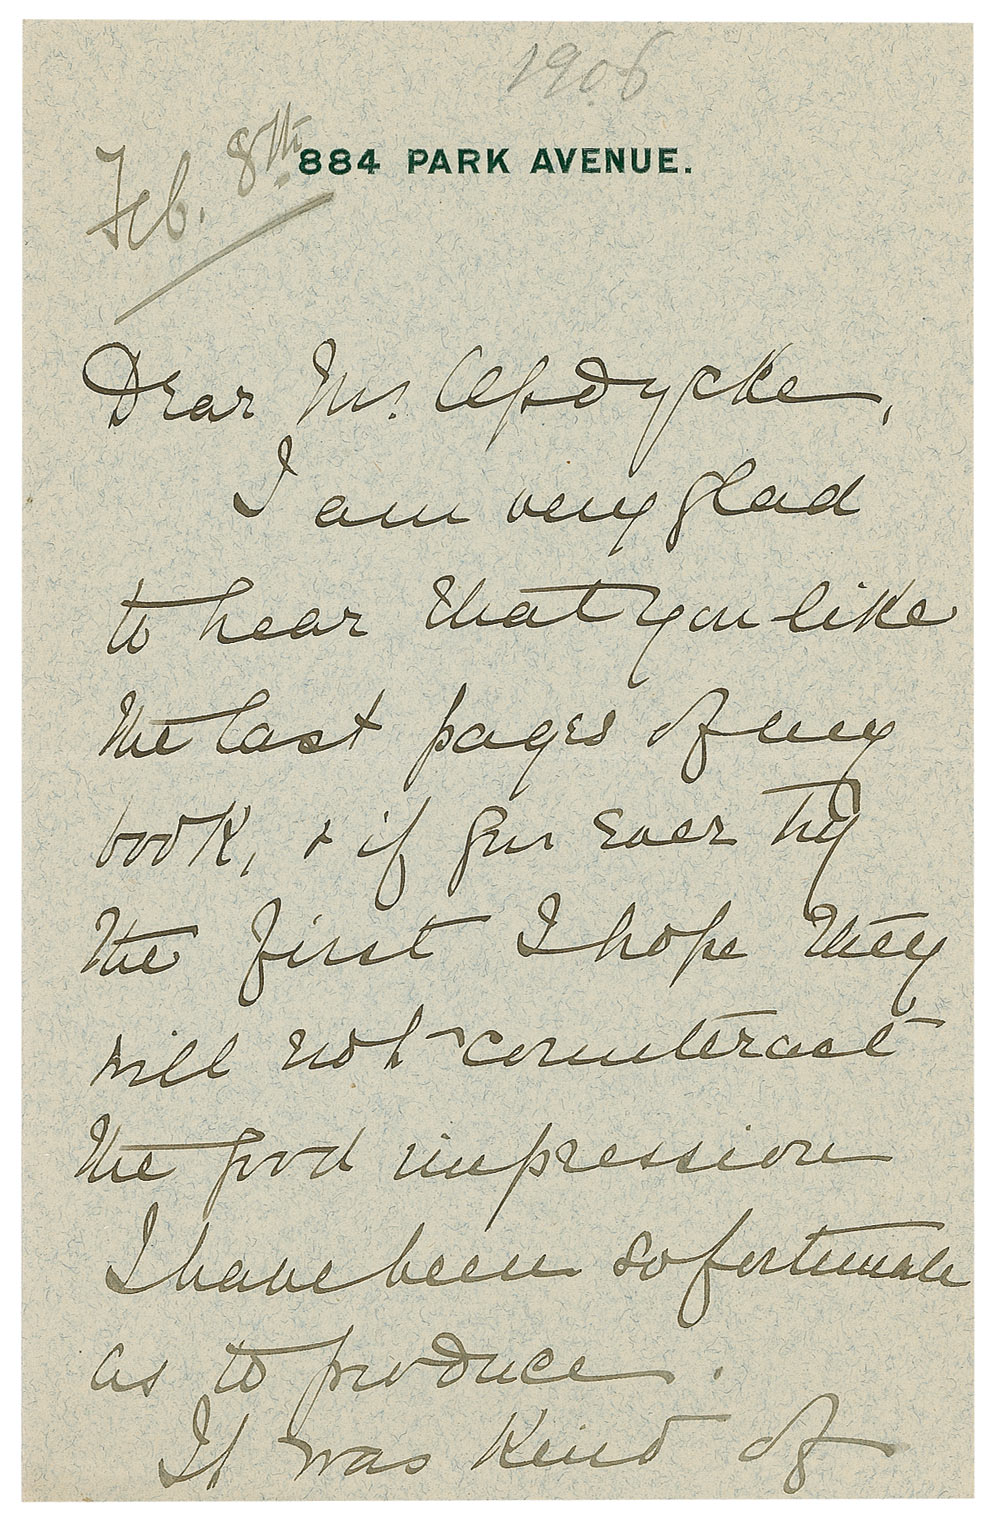 1906
Feb. 8th
884 PARK AVENUE.
Dear Mr. Opdycke,
I am very glad
to hear that you like
the last pages of my
book, & if you ever try
the first I hope they
will not counteract
the good impression
I have been so fortunate
as to produce.
It was kind of